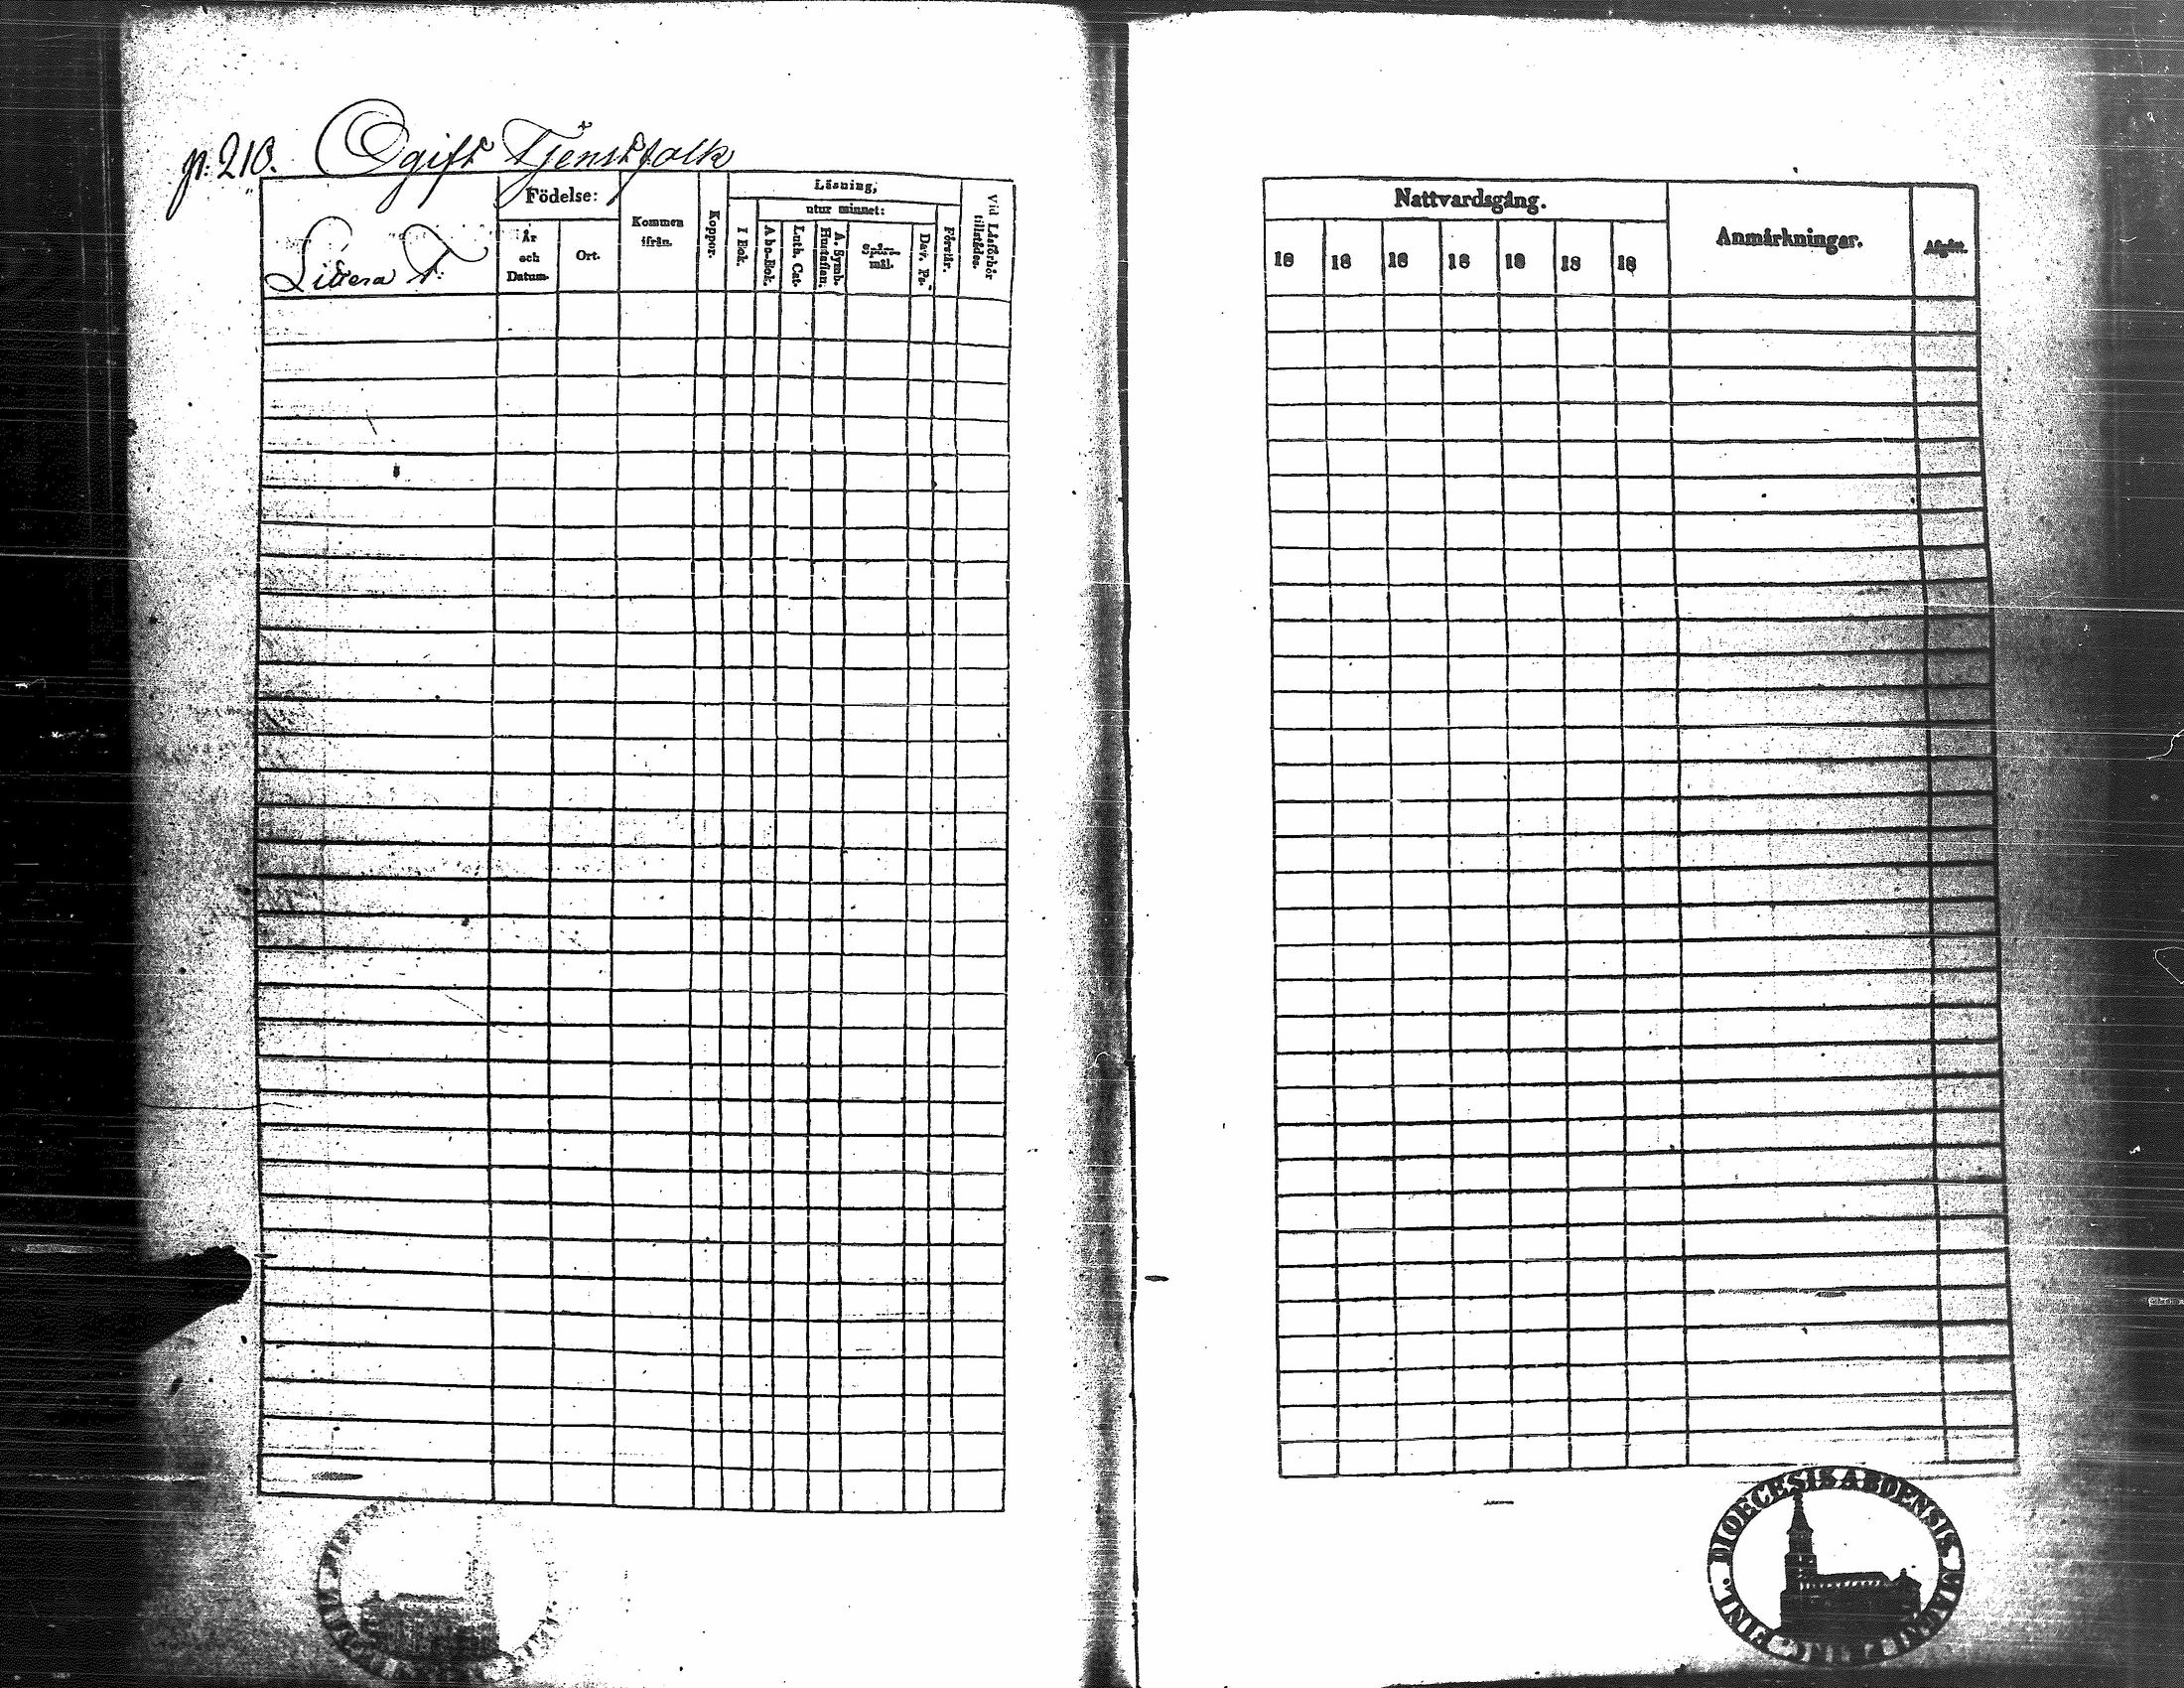 p. 210. Ogift Tjenstfolk
Födelse:
Kommen
ifrån.
Koppor.
Läsning,
utur minnet:
Vid Läsförhör
tillstädes.
År
och
Datum.
Ort.
I Bok.
Abc-Bok.
Luth. Cat.
A. Symb.
Hustaflan.
Spörs-
mål.
Dav. Ps.
Förstår.
Nattvardsgång.
Anmärkningar.
18 18 18 18 18 18 18
DIOECESIS ABOENSIS MAGNI PRINC. FINL.